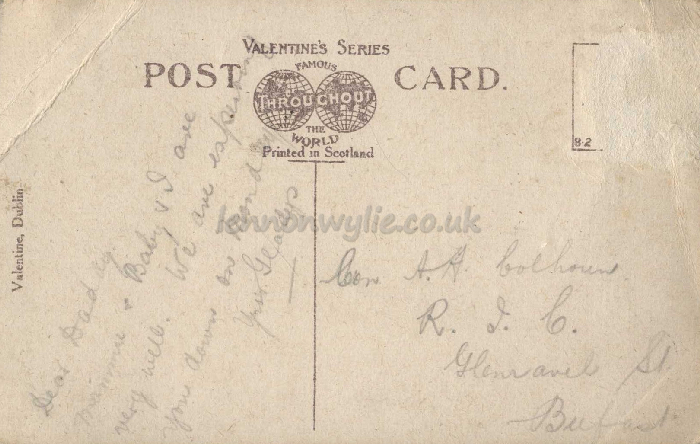 VALENTINE'S SERIES
POST CARD.
FAMOUS
THROUGHOUT
THE
WORLD
Printed in Scotland
82
Valentine, Dublin
lennonwylie.co.uk
Dear Daddy
Mammie & Baby & I are
very well. We are expecting
you down on Monday
Gladys
Con A. H. Colhoun
R. I. C.
Glenravel St
Belfast